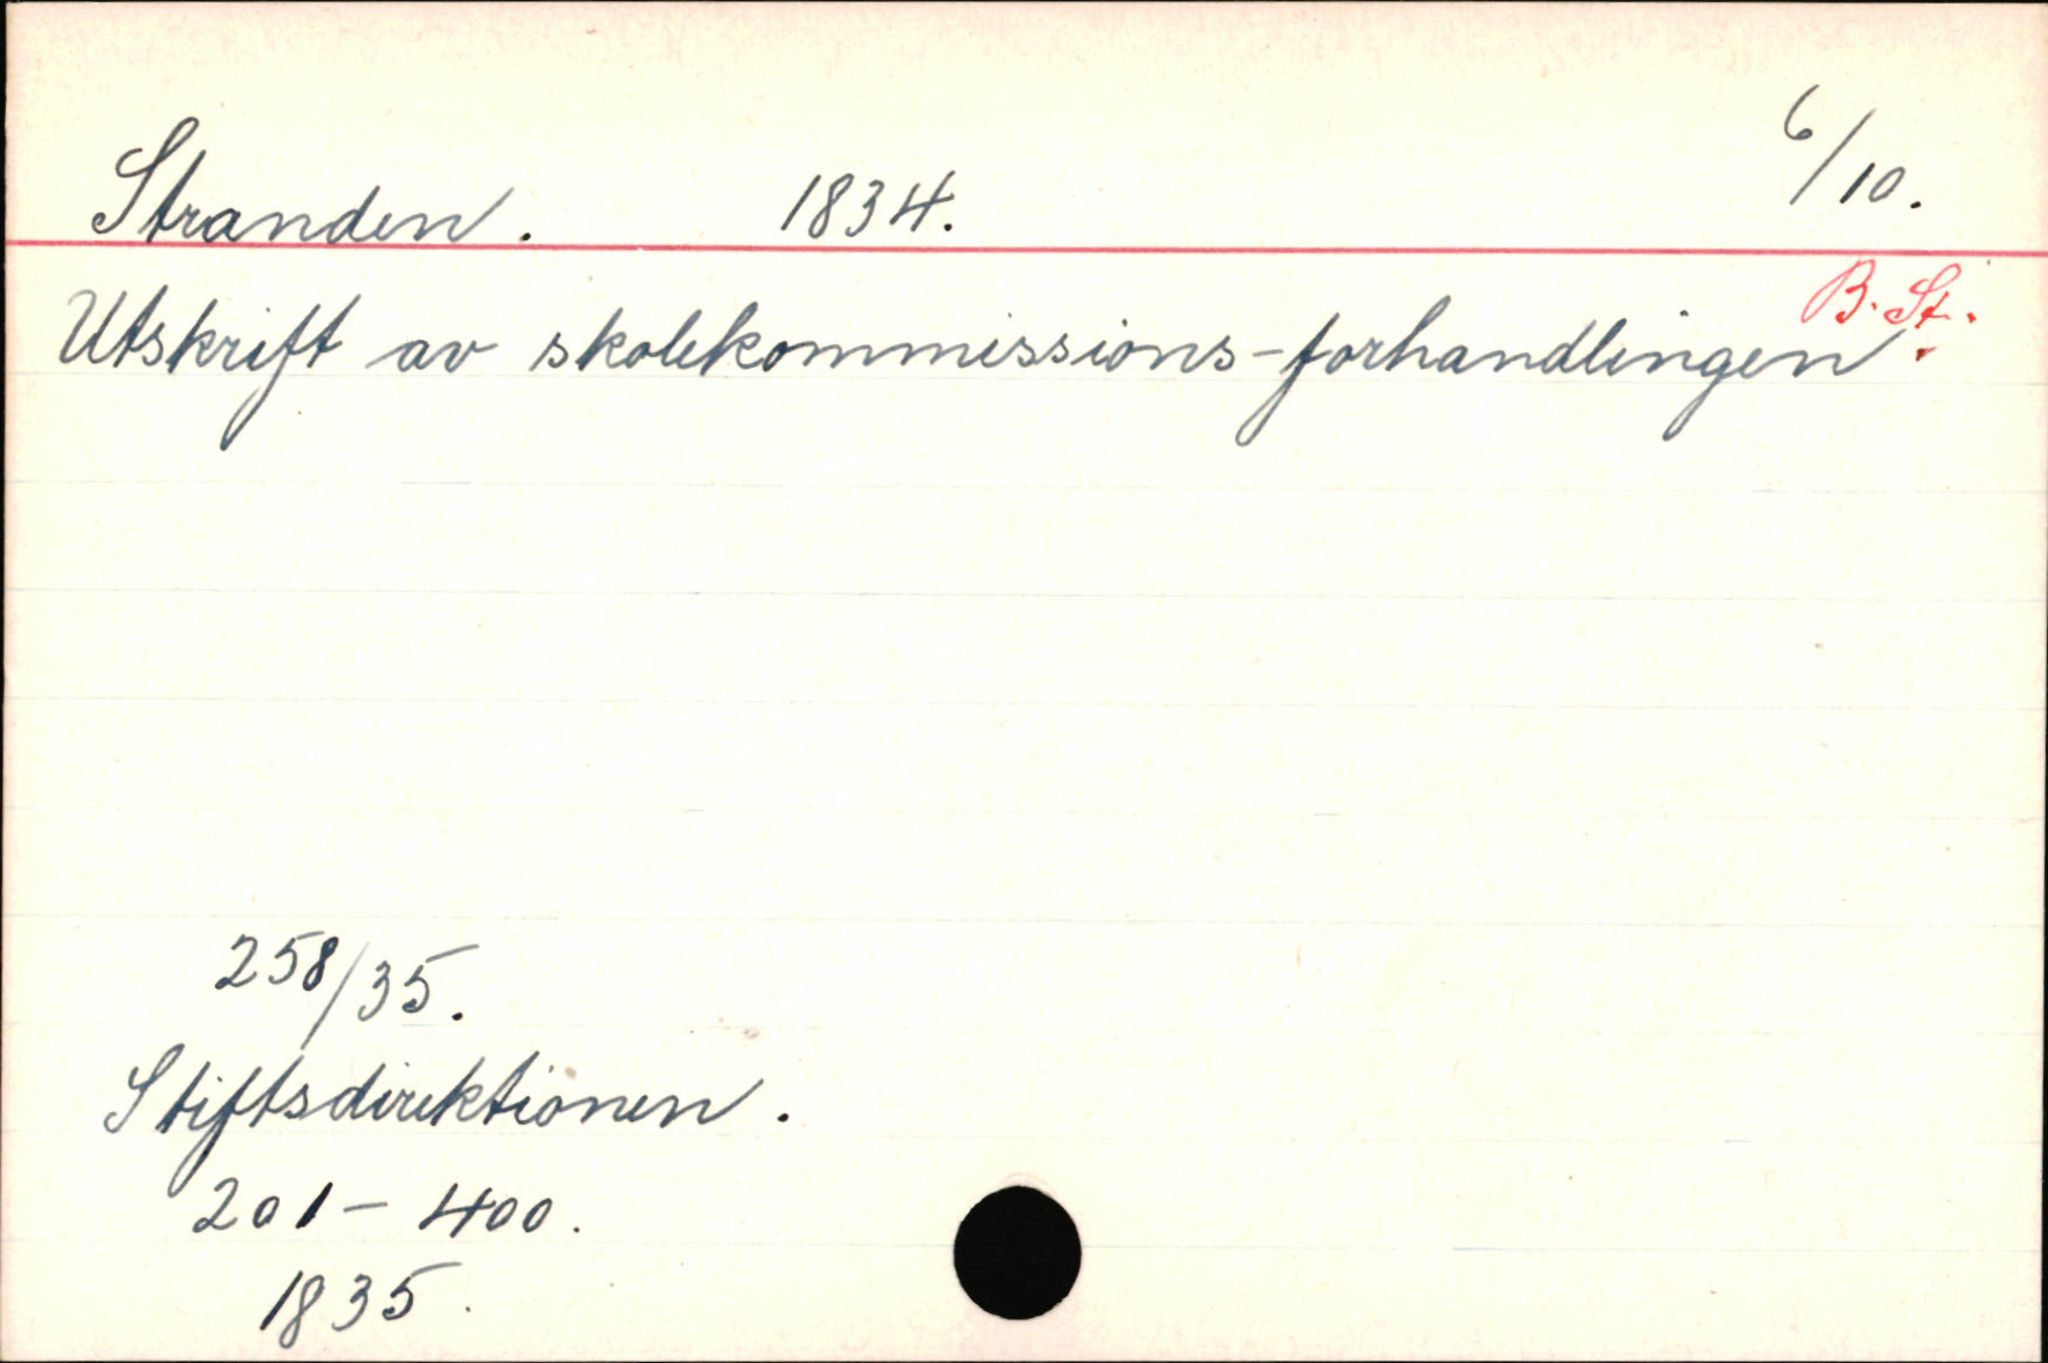 Stranden. 1834. 6/10.
B. St.
Utskrift av skolekommissions-forhandlingen.
258/35.
Stiftsdirektionen.
201-400.
1835.